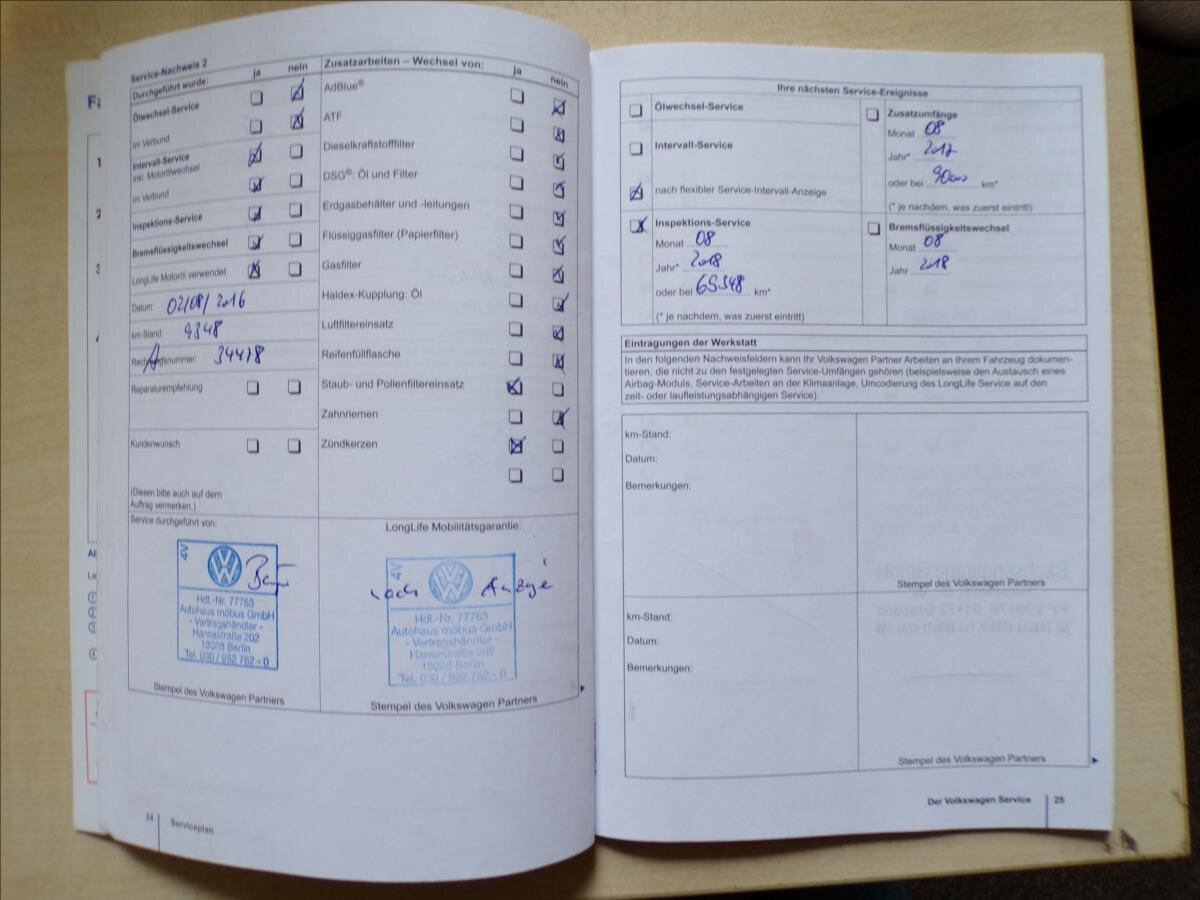 Service-Nachweis 2
Durchgeführt wurde: ja nein
Ölwechsel-Service
im Verbund
Intervall-Service
inkl. Motorölwechsel
im Verbund
Inspektions-Service
Bremsflüssigkeitswechsel
LongLife Motoröl verwendet
Datum: 02/08/2016
km-Stand: 9348
Rechnungsnummer: 34478
Reparaturempfehlung
Kundenwunsch
(Diesen bitte auch auf dem
Auftrag vermerken.)
Zusatzarbeiten – Wechsel von: ja nein
AdBlue®
ATF
Dieselkraftstofffilter
DSG®: Öl und Filter
Erdgasbehälter und -leitungen
Flüssiggasfilter (Papierfilter)
Gasfilter
Haldex-Kupplung: Öl
Luftfiltereinsatz
Reifenfüllflasche
Staub- und Pollenfiltereinsatz
Zahnriemen
Zündkerzen
Service durchgeführt von:
4V
Hdl.-Nr. 77763
Autohaus möbus GmbH
- Vertragshändler -
Hansastraße 202
13088 Berlin
Tel. 030 / 962 762 - 0
Stempel des Volkswagen Partners
LongLife Mobilitätsgarantie:
4V
nach Anzeige
Hdl.-Nr. 77763
Autohaus möbus GmbH
- Vertragshändler -
Hansastraße 202
13088 Berlin
Tel. 030 / 962 762 - 0
Stempel des Volkswagen Partners
24 Serviceplan
Ihre nächsten Service-Ereignisse
Ölwechsel-Service
Intervall-Service
nach flexibler Service-Intervall-Anzeige
Zusatzumfänge
Monat 08
Jahr* 2017
oder bei 90000 km*
(* je nachdem, was zuerst eintritt)
Inspektions-Service
Monat 08
Jahr* 2018
oder bei 69348 km*
(* je nachdem, was zuerst eintritt)
Bremsflüssigkeitswechsel
Monat 08
Jahr 2018
Eintragungen der Werkstatt
In den folgenden Nachweisfeldern kann Ihr Volkswagen Partner Arbeiten an Ihrem Fahrzeug dokumen-
tieren, die nicht zu den festgelegten Service-Umfängen gehören (beispielsweise den Austausch eines
Airbag-Moduls, Service-Arbeiten an der Klimaanlage, Umcodierung des LongLife Service auf den
zeit- oder laufleistungsabhängigen Service).
km-Stand:
Datum:
Bemerkungen:
Stempel des Volkswagen Partners
km-Stand:
Datum:
Bemerkungen:
Stempel des Volkswagen Partners
Der Volkswagen Service 25